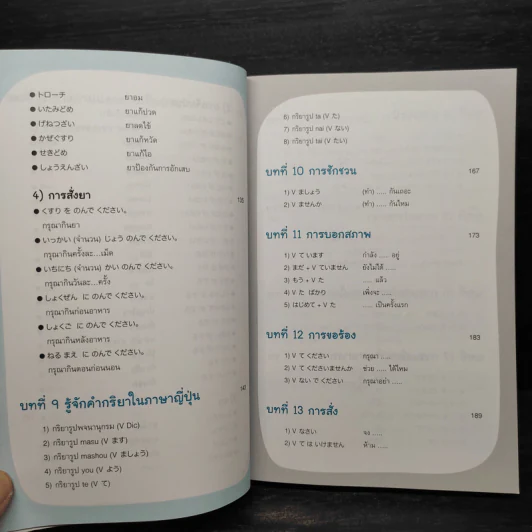 ● トローチ ยาอม
● いたみどめ ยาแก้ปวด
● げねつざい ยาลดไข้
● かぜぐすり ยาแก้หวัด
● せきどめ ยาแก้ไอ
● しょうえんざい ยาป้องกันการอักเสบ
4) การสั่งยา
● くすり を のんで ください。
กรุณากินยา
● いっかい (จำนวน) じょう のんで ください。
กรุณากินครั้งละ...เม็ด
● いちにち (จำนวน) かい のんで ください。
กรุณากินวันละ...ครั้ง
● しょくぜん に のんで ください。
กรุณากินก่อนอาหาร
● しょくご に のんで ください。
กรุณากินหลังอาหาร
● ねる まえ に のんで ください。
กรุณากินตอนก่อนนอน
บทที่ 9 รู้จักคำกริยาในภาษาญี่ปุ่น
1) กริยารูปพจนานุกรม (V Dic)
2) กริยารูป masu (V ます)
3) กริยารูป mashou (V ましょう)
4) กริยารูป you (V よう)
5) กริยารูป te (V て)
6) กริยารูป ta (V た)
7) กริยารูป nai (V ない)
8) กริยารูป tai (V たい)
บทที่ 10 การชักชวน 167
1) V ましょう (ทำ) ..... กันเถอะ
2) V ませんか (ทำ) ..... กันไหม
บทที่ 11 การบอกสภาพ 173
1) V て います กำลัง ..... อยู่
2) まだ + V ていません ยังไม่ได้ .....
3) もう + V た ..... แล้ว
4) V た ばかり เพิ่งจะ .....
5) はじめて + V た ..... เป็นครั้งแรก
บทที่ 12 การขอร้อง 183
1) V て ください กรุณา .....
2) V て くださいませんか ช่วย ..... ได้ไหม
3) V ない で ください กรุณาอย่า .....
บทที่ 13 การสั่ง 189
1) V なさい จง .....
2) V て は いけません ห้าม .....